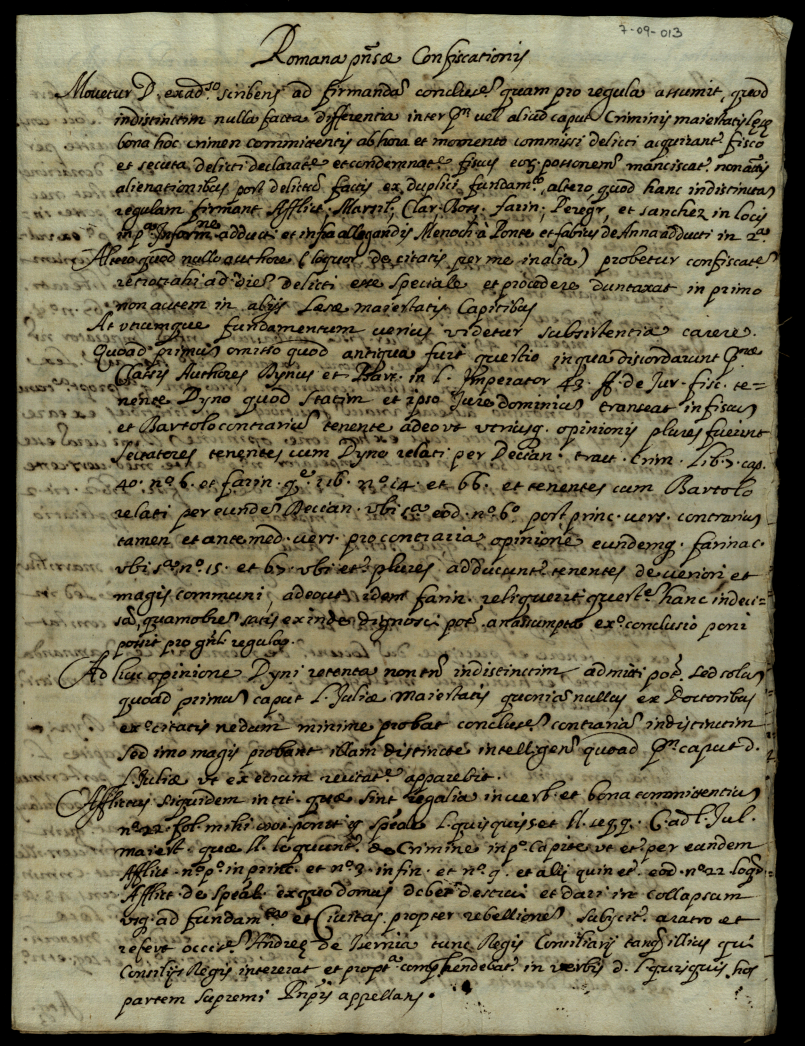 7-09-013
Romana pñsæ Confiscationis
Movetur D. ex adso scribens ad firmandã conclusẽ quam pro regula assumit, quod
indistinctim nulla facta differentia inter pm vel aliud caput Criminis maiestatis lęsę
bona hoc crimen committentis ab hora et momento commissi delicti acquirant fisco
et secuta delicti declarate et condemnate fiscus eoz. possionem manciscat non
alienationibus post delictũ factis ex duplici fundamto, altero quod hanc indistinctã
regulam firmant Afflict. Marsil, Clar. Boss. farin, Peregr, et sanchez in locis
in pa Inforne adducti et infra allegandis Menoch à Ponte et fabius de Anna adducti in 2a
Altero quod nullo authore (loquor de citatis per me in alia) probetur confiscatẽ
retrotrahi ad diẽ delicti esse speciale et procedere duntaxat in primo
non autem in alijs Lesæ maiestatis Capitibus
At utrumque fundamentum verius videtur subsistentia carere.
Quoad primũ omitto quod antiqua fuit questio in qua discordarunt pmæ
Classis Authores Dynus et Bart. in l. Imperator 43. ff. de Jur. fisc. te=
nente Dyno quod statim et ipso Jure dominiũ transeat in fiscũ
et Bartolo contrariũ tenente adeo ut utriusq. opinionis plures fuerint
sectatores tenentes cum Dyno relati per Decian. tract. Crim. Lib. 7. cap.
40. no 6. et farin. q. 116. no 14. et 66. et tenentes cum Bartolo
relati per eundẽ Decian. ubi sa eod. no 6o post princ. vers. contrarium
tamen et ante med. vers. pro contraria opinione eundemq. farinac.
ubi sa no 15. et 67. ubi et plures adducunt tenentes de veriori et
magis communi, adeout idem farin. reliquerit questẽ hanc indeci=
sã, quamobrẽ satis exinde dignosci pot, an assumpta exo conclusio poni
possit pro gñli regula.
Ad huc opinione Dyni retenta non tñ indistinctim admitti pot, sed solũ
quoad primũ caput l. Juliæ maiestatis quoniã nullus ex Doctoribus
exo citatis nedum minime probat conclusẽ contrariã indistinctim
sed imo magis probant illam distincte intelligendã quoad pm caput d.
l. Juliæ ut ex eorum recitate apparebit.
Afflictus siquidem in tit. quæ sint regalia in verb. et bona committentiũ
no 22. fol. mihi ponit q speâle l. quisquis et ll. seqq. C. ad l. Jul.
maiest. quæ ll. loquunt. de Crimine in po capite, ut et per eundem
Afflict. no po in princ. et no 3. in fin. et no 9. et alij quin et eod. no 22 loqr.
Afflict. de speâli ex quo domus debet destrui et dari in collapsum
usq. ad fundamta et Civitas propter rebellionẽ subijcit aratro et
refert occisẽ Andreę de Isernia tunc Regis Consiliarij tanq illius qui
Consilijs Regis intererat et propta comphendebat in verbis d. l. quisquis hos
partem supremi Pnpis appellans.